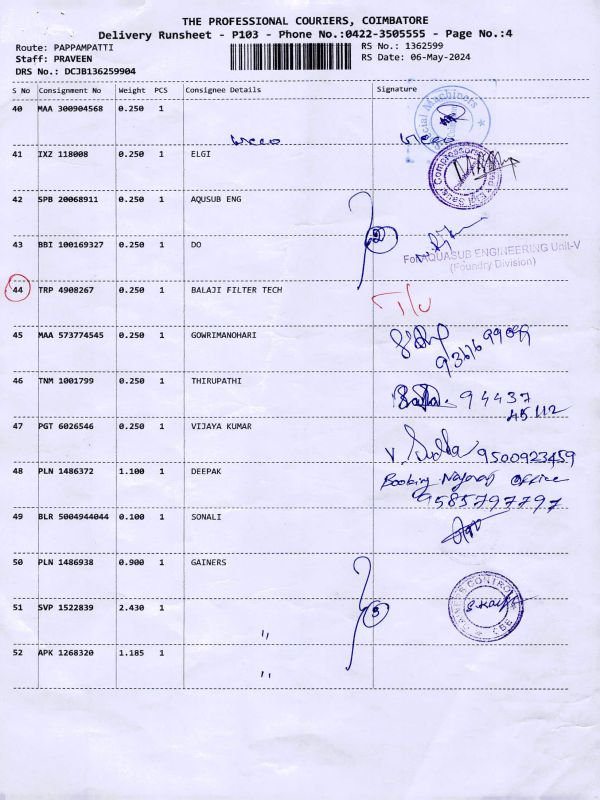 THE PROFESSIONAL COURIERS, COIMBATORE
Delivery Runsheet - P103 - Phone No.:0422-3505555 - Page No.:4
Route: PAPPAMPATTI RS No.: 1362599
Staff: PRAVEEN RS Date: 06-May-2024
DRS No.: DCJB136259904
S No Consignment No Weight PCS Consignee Details Signature
40 MAA 300904568 0.250 1
41 IXZ 118008 0.250 1 ELGI
42 SPB 20068911 0.250 1 AQUSUB ENG
2
43 BBI 100169327 0.250 1 DO
For AQUASUB ENGINEERING Unit-V
(Foundry Division)
44 TRP 4908267 0.250 1 BALAJI FILTER TECH
45 MAA 573774545 0.250 1 GOWRIMANOHARI
46 TNM 1001799 0.250 1 THIRUPATHI
94437
45112
47 PGT 6026546 0.250 1 VIJAYA KUMAR
9500923459
48 PLN 1486372 1.100 1 DEEPAK Booking office
9585797797
49 BLR 5004944044 0.100 1 SONALI
50 PLN 1486938 0.900 1 GAINERS
51 SVP 1522839 2.430 1 "
3
52 APK 1268320 1.185 1 "